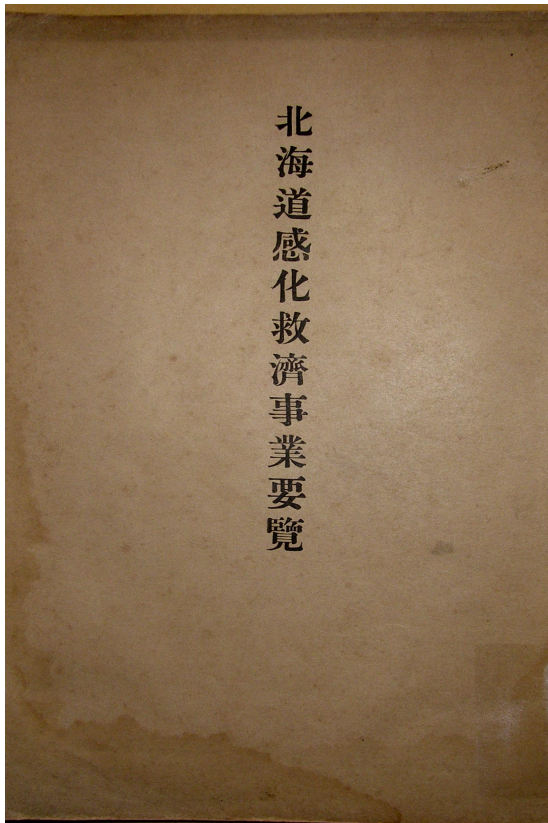 北海道感化救濟事業要覽